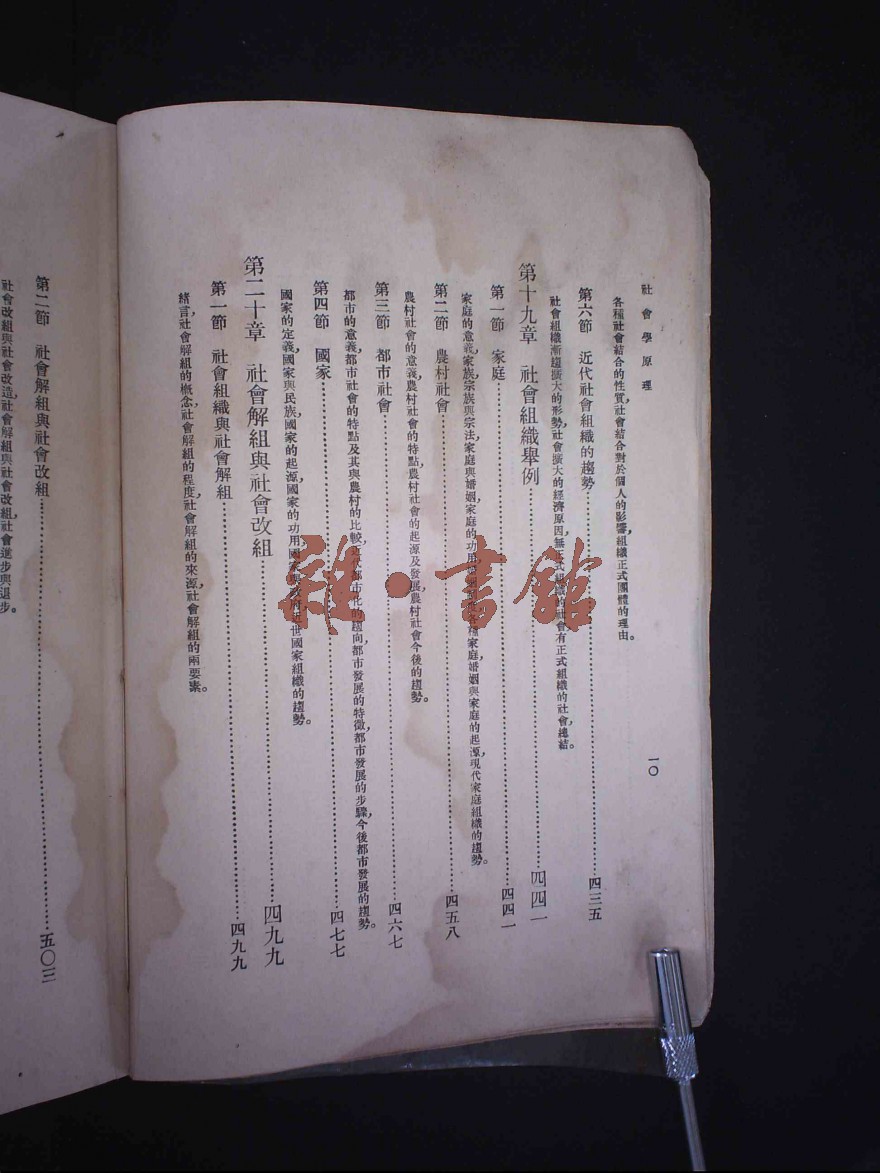 社會學原理
一〇
各種社會結合的性質,社會結合對於個人的影響,組織正式團體的理由。
第六節 近代社會組織的趨勢……四三五
社會組織漸趨擴大的形勢,社會擴大的經濟原因,無正式組織的社會,有正式組織的社會,總結。
第十九章 社會組織舉例……四四一
第一節 家庭……四四一
家庭的意義,家族宗族與宗法,家庭與婚姻,家庭的功用,各種家庭婚姻與家庭的起源,現代家庭組織的趨勢。
第二節 農村社會……四五八
農村社會的意義,農村社會的特點,農村社會的起源及發展,農村社會今後的趨勢。
第三節 都市社會……四六七
都市的意義,都市社會的特點及其與農村的比較,近代都市化的趨向,都市發展的特徵,都市發展的步驟,今後都市發展的趨勢。
第四節 國家……四七七
國家的定義,國家與民族,國家的起源,國家的功用,國家與政府,近世國家組織的趨勢。
第二十章 社會解組與社會改組……四九九
第一節 社會組織與社會解組……四九九
緒言,社會解組的概念,社會解組的程度,社會解組的來源,社會解組的兩要素。
第二節 社會解組與社會改組……五〇三
社會改組與社會改造,社會解組與社會改組,社會進步與退步。
雜·書館